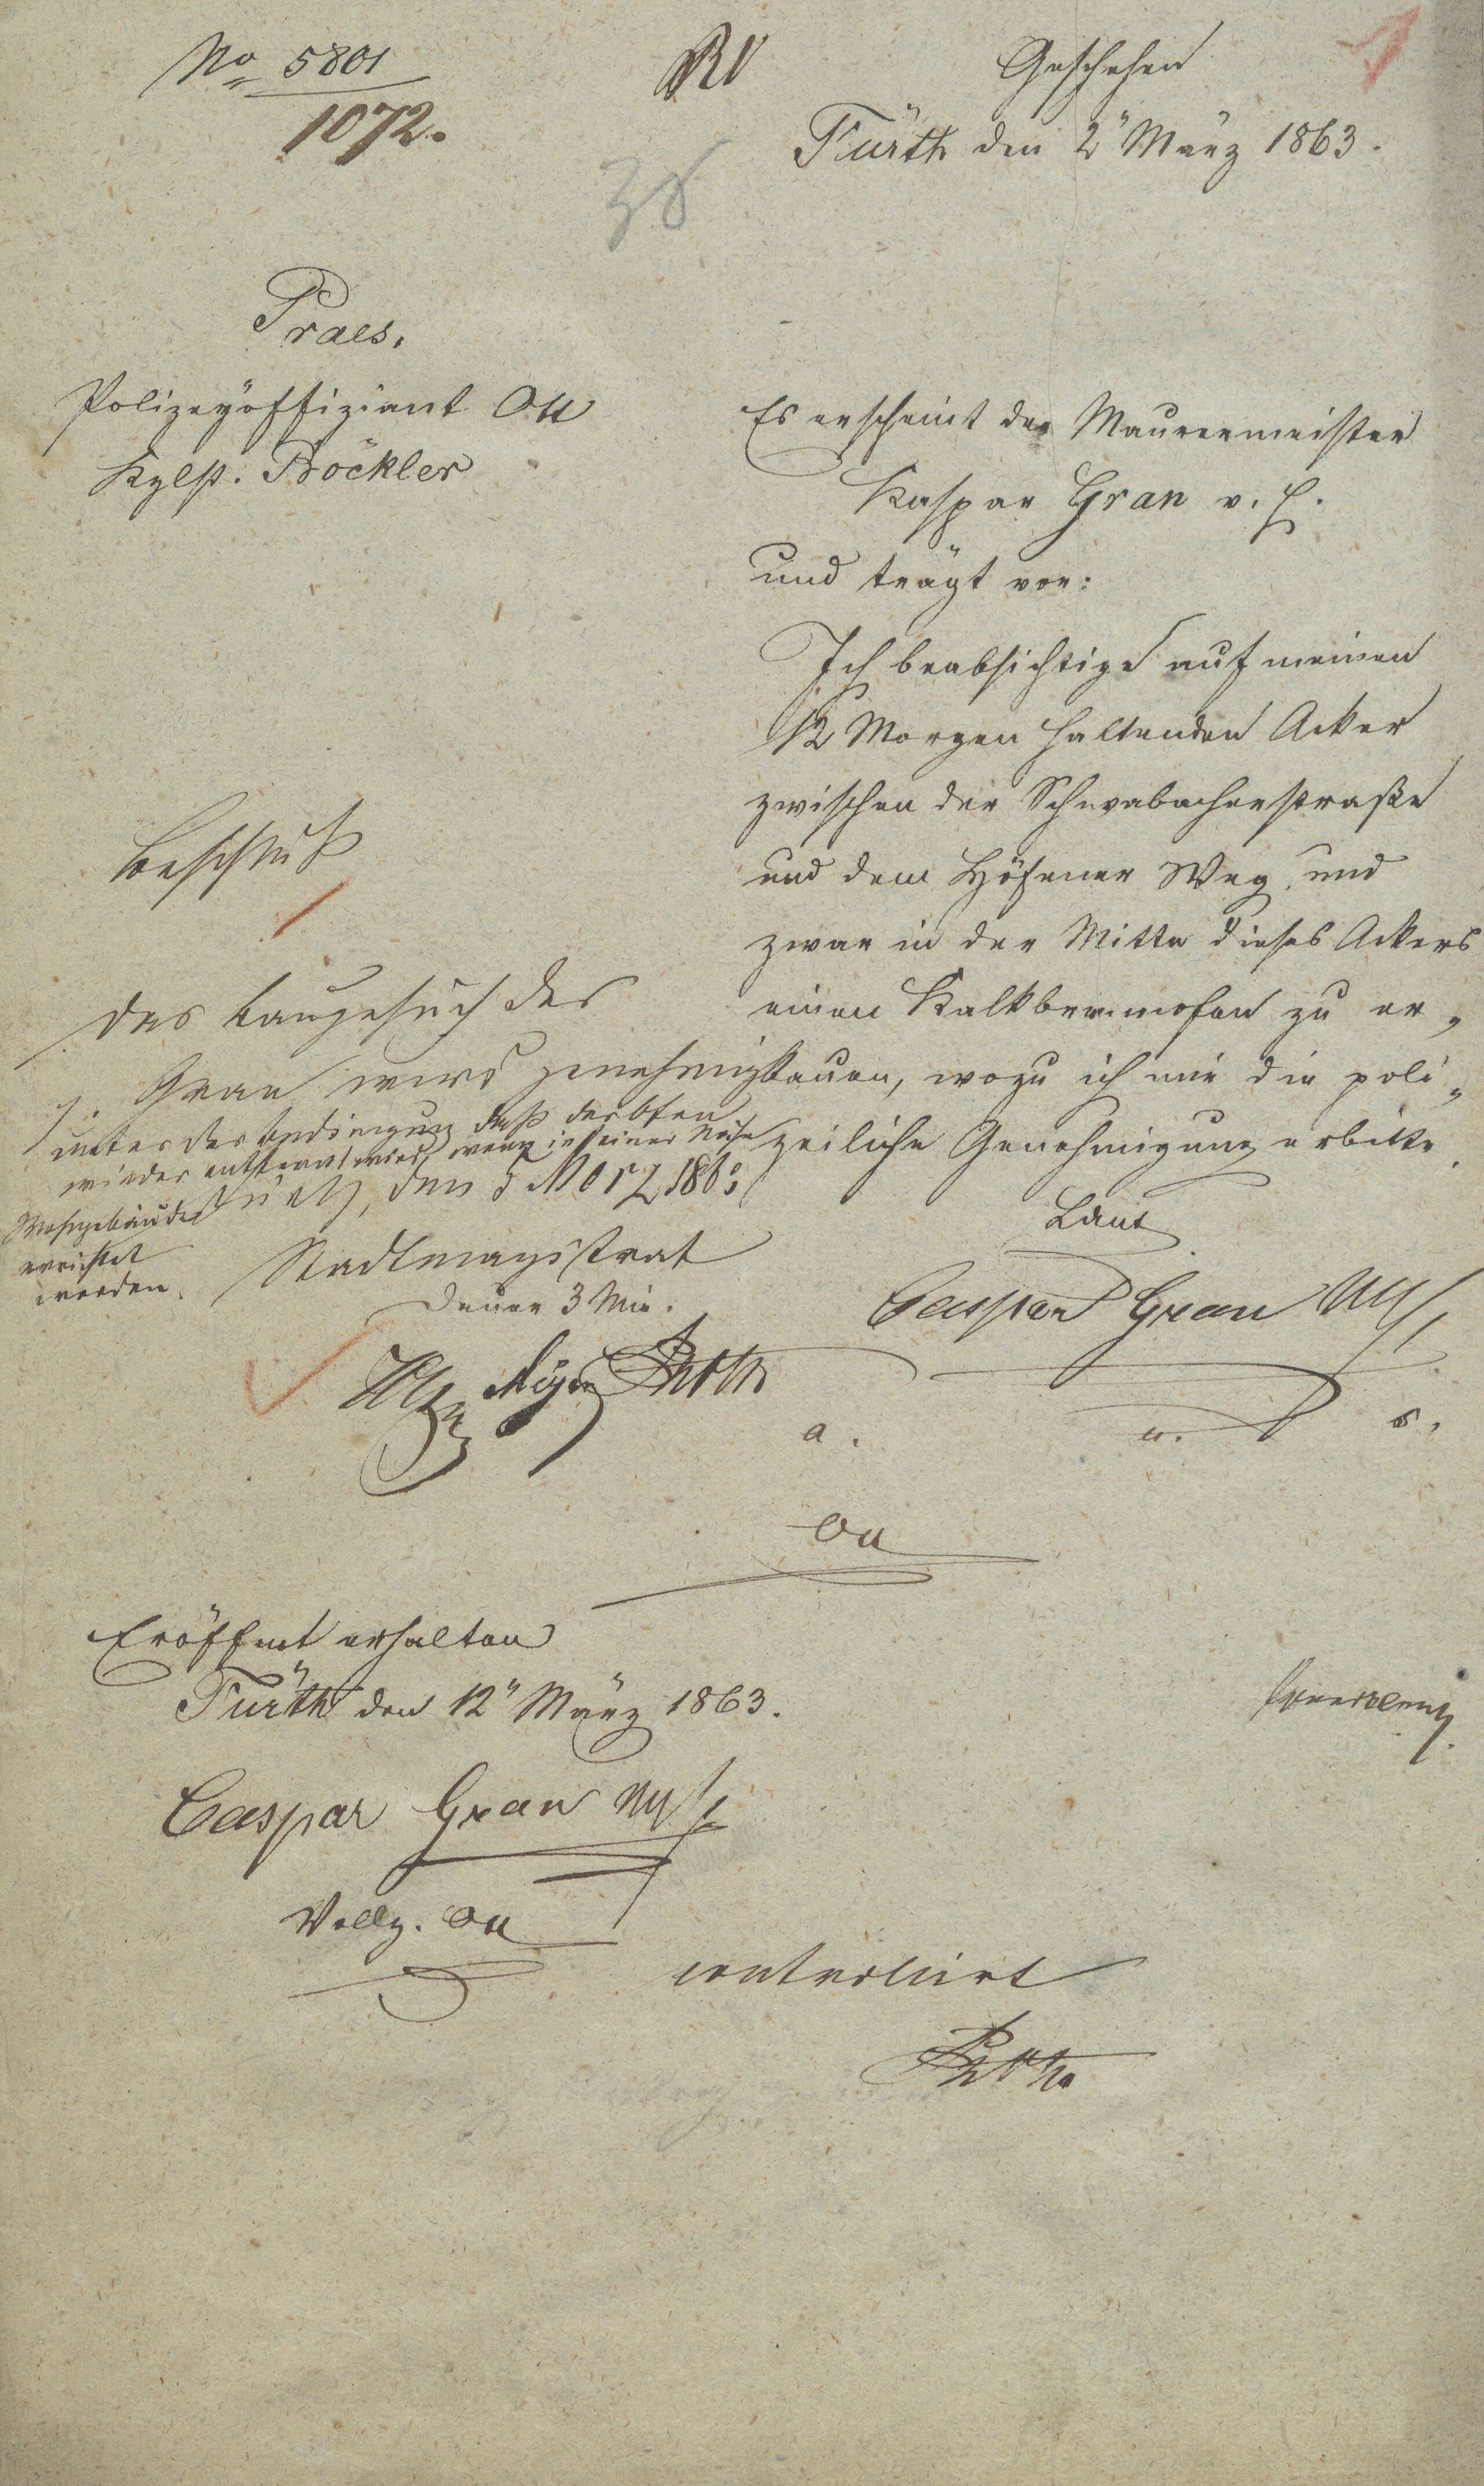 No 5801
1072.
RV
Geschehen
Fürth den 2" März 1863.
38
Praes.
Polizeyoffiziant Ott
Böckler
Es erscheint der Maurermeister
Kaspar Gran v. h.
und trägt vor:
Ich beabsichtige auf meinen
12 Morgen haltenden Acker
zwischen der Schwabacherstraße
und dem Höfener Weg, und
zwar in der Mitte dieses Ackers
einen Kalkbrennofen zu er„
bauen, wozu ich mir die poli„
zeiliche Genehmigung erbitte.
Laut
Caspar Gran
a. u. s.
Ott
Beschluß
Das Baugesuch des
p. Gran wird genehmigt
unter der Bedingung daß der Ofen
wieder entfernt wird, wenn in seiner Nähe
Wohngebäude
errichtet
werden.
Fürth, den 5 März 1863
Stadtmagistrat
Dauer 3 Min.
Eröffnet erhalten
Fürth den 12" März 1863.
Caspar Gran
Vollz. Ott
controlirt